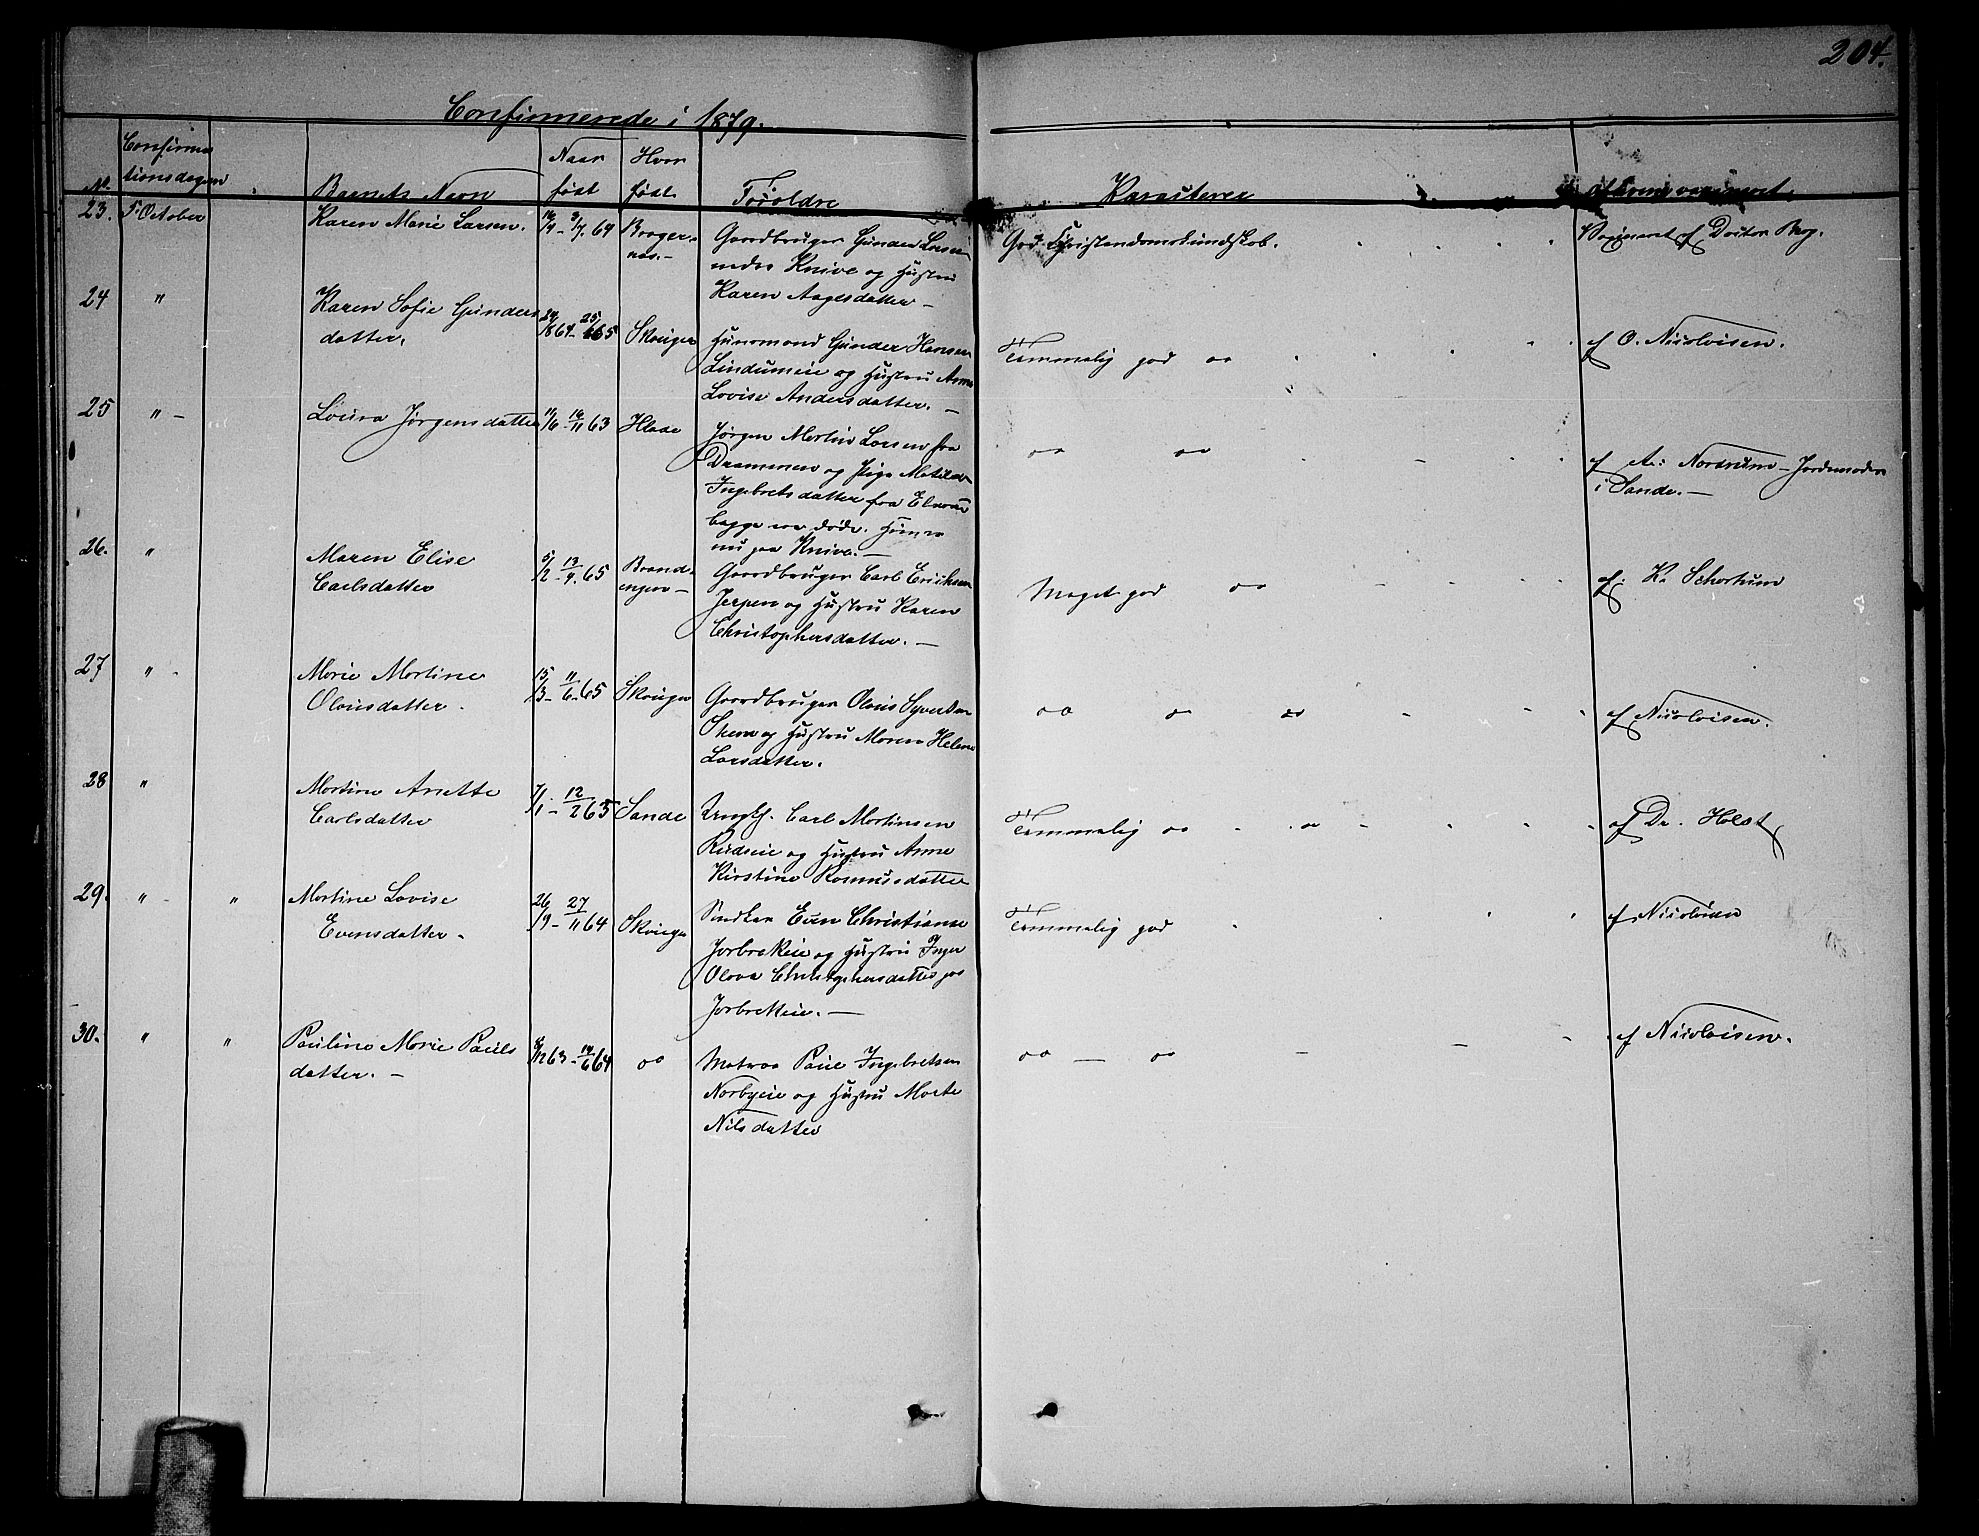 204.
Confirmerede i 1879.
No. Confirma
tionsdagen Barnets Navn Naar
født Hvor
født Foræoldre Karacterer
23. 5. October Karen Marie Larsen. 16/4 - 3/7. 64 Brager-
nes.- Gaardbruger Gunder Larsen
nedre Knive og Hustru
Karen Aagesdatter - God Christendomskundskab. Vaccineret af Doctor
24 " Karen Sofie Gunders
datter. 64 - 65 Skouger Huusmand Gunder Hansen
Lindumeie og Hustru Anne
Lovise Andersdatter. - Temmelig god oo af O. Nicolaisen.
25 " - Laura Jørgensdatter 11/6 - 63 Jørgen Martin Larsen fra
Drammen og Pige
Ingebretsdatter fra
begge ere døde.
nu paa Knive. - oo oo af Nordrum - Jordemoder
i Sande. -
26. " Maren Elise
Carlsdatter 5/2 - 17/4. 65 Brand-
engen - Gaardbruger Carl Eriksen
Jerpen og Hustru Karen
Christophersdatter. - Meget god oo af K. Schortum
27 " - Marie Martine
Olausdatter. 15/3 - 11/6 - 65 Skouger Gaardbruger Olaus Syvertsen
og Hustru Maren Helene
Larsdatter. oo oo oo af Nicolaisen.
28 " Martine Anette
Carlsdatter 7/1 - 12/2 65 Sande Ungk. Carl Martinsen
og Hustru Anne
Kirstine Rasmusdatter Temmelig oo af Dr. Holst
29. " - " Martine Lovise
Evensdatter - 26/9 - 27/11 64 Skouger Even Christiansen
Jarbrekeie og Hustru Inger
Olava Christophersdatter paa
Jarbrekeie. - Temmelig god af Nicolaisen
30. " " Pauline Marie Pauls
datter. - 8/12 63 - 64 oo Matros Paul Ingebretsen
Norbyeie og Hustru Marte
Nilsdatter oo - oo af Nicolaisen.